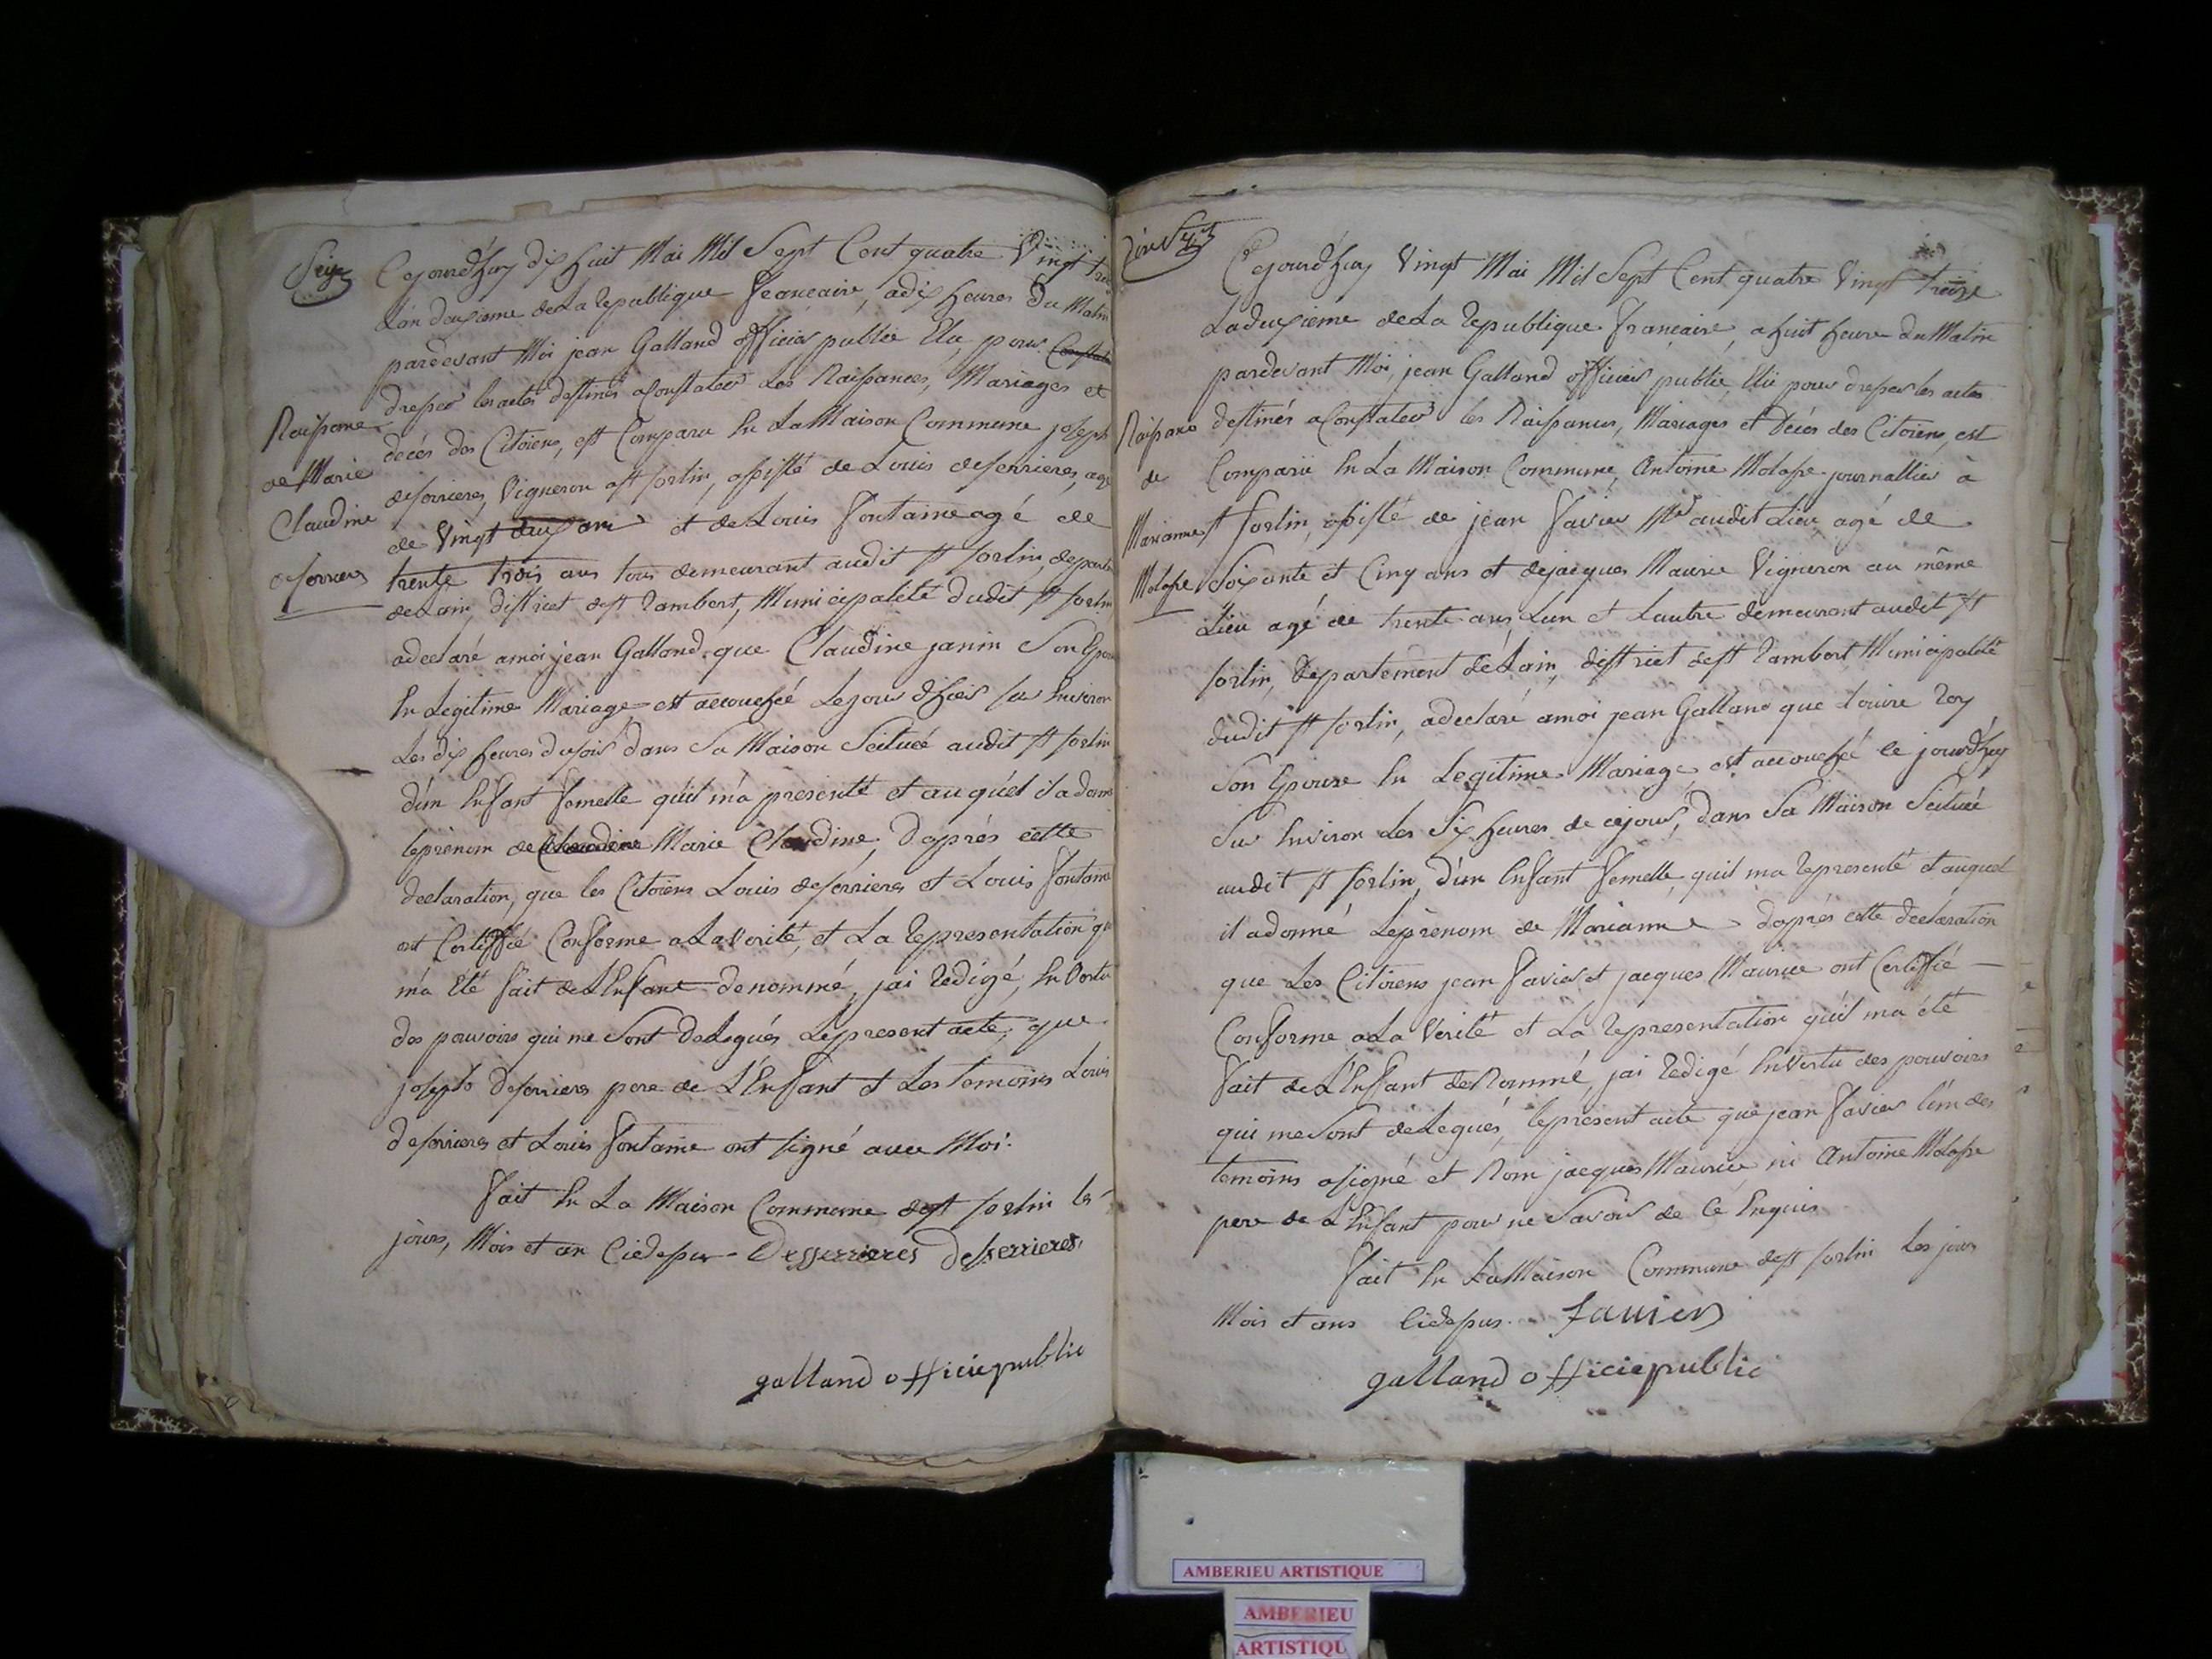 Seize
Cejourd'huy dix huit Mai Mil Sept Cent quatre Vingt trei
L'an deuxieme de La Republique francaise, a dix heures du Matin
pardevant Moi jean Galland officier public Elu, pour
dresser les actes destinés a Constater Les Naissances, Mariages et
décés des Citoiens, est Comparu En La Maison Commune joseph
desserrieres, Vigneron a st sorlin, assisté de Louis desserrieres, agé
de Vingt deux ans et de Louis fontaine agé de
trente trois ans tous demeurant audit st sorlin, departe
de Lain, district de st Rambert, Municipalité dudit st sorlin
a declaré a moi jean Galland que Claudine janin Son Epou
En Legitime Mariage est accouchée Le jour d'hier sur Environ
Les dix heures du soir dans Sa Maison Scituée audit st sorlin
d'un Enfant femelle qu'il m'a presenté et auquel il a donné
le prénom de Marie Claudine, d'aprés cette
declaration, que les Citoiens Louis desserrieres et Louis fontaine
ont Certiffié Conforme a La Verité, et La Representation qu
m'a Eté fait de L'Enfant denommé, jai Redigé, En Vertu
des pouvoirs qui me Sont deLegués Le present acte, que
joseph desserrieres pere de L'Enfant et Les temoins Louis
desserrieres et Louis fontaine ont signé avec Moi.
fait En La Maison Commune de st sorlin les
jours, Mois et an Cidessus - Desserrieres desserrieres
galland officie public
Naissance
de Marie
Claudine
desserrieres
Cejourd'huy Vingt Mai Mil Sept Cent quatre Vingt treize
La deuxieme de La Republique francaise, a huit heure du Matin
pardevant Moi, jean Galland officier public, Elu pour dresser les actes
destinés a Constater les Naissances, Mariages et Décés des Citoiens, est
Comparu En La Maison Commune, Antoine Molasse journallier à
st sorlin, assisté de jean favier audit Lieu agé de
Soixante et Cinq ans et de jacques Maurice Vigneron au même
Lieu agé de trente ans, Lun et Lautre demeurant audit st
sorlin, Departement de Lain, district de st Rambert, Municipalité
dudit st sorlin, a declaré a moi jean Galland que Louise Roy
Son Epouse En Legitime Mariage, est accouchée ce jourd'huy
Sur Environ Les Six heures de ce jour, dans Sa Maison Scituée
audit st sorlin, d'un Enfant femelle quil ma Representé et auquel
il a donné Le prénom de Marianne d'aprés cette declaration
que Les Citoiens jean favier et jacques Maurice ont Certiffié
Conforme a La Verité et La Representation qu'il ma été
fait de L'Enfant deNommé, jai Redigé En Vertu des pouvoirs
qui me Sont déLegués, le present acte que jean favier l'un des
temoins a signé et Non jacques Maurice ni Antoine Molasse
pere de L'Enfant pour ne Savoir de Ce Enquis
fait En La Maison Commune de st sorlin Les jour
Mois et ans Cidessus. Favier
galland officie public
Naissance
de
Marianne
Molasse
AMBERIEU ARTISTIQUE
AMBERIEU
ARTISTIQU